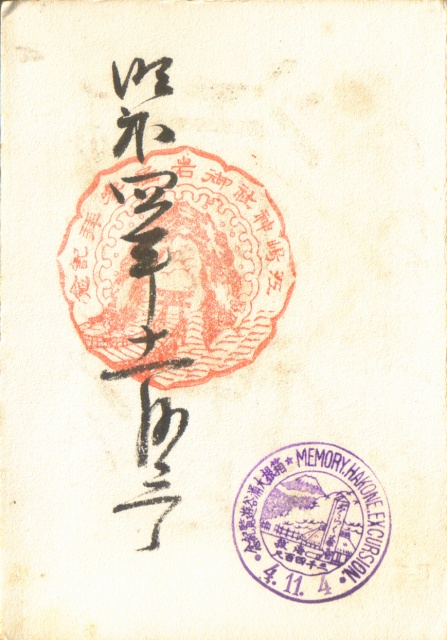 昭和四年十一月
江嶋神社御岩屋参拝記念
箱根大涌谷遊覧記念★MEMORY.HAKONE.EXCURSION.
海抜
三千四百尺
4.11.4